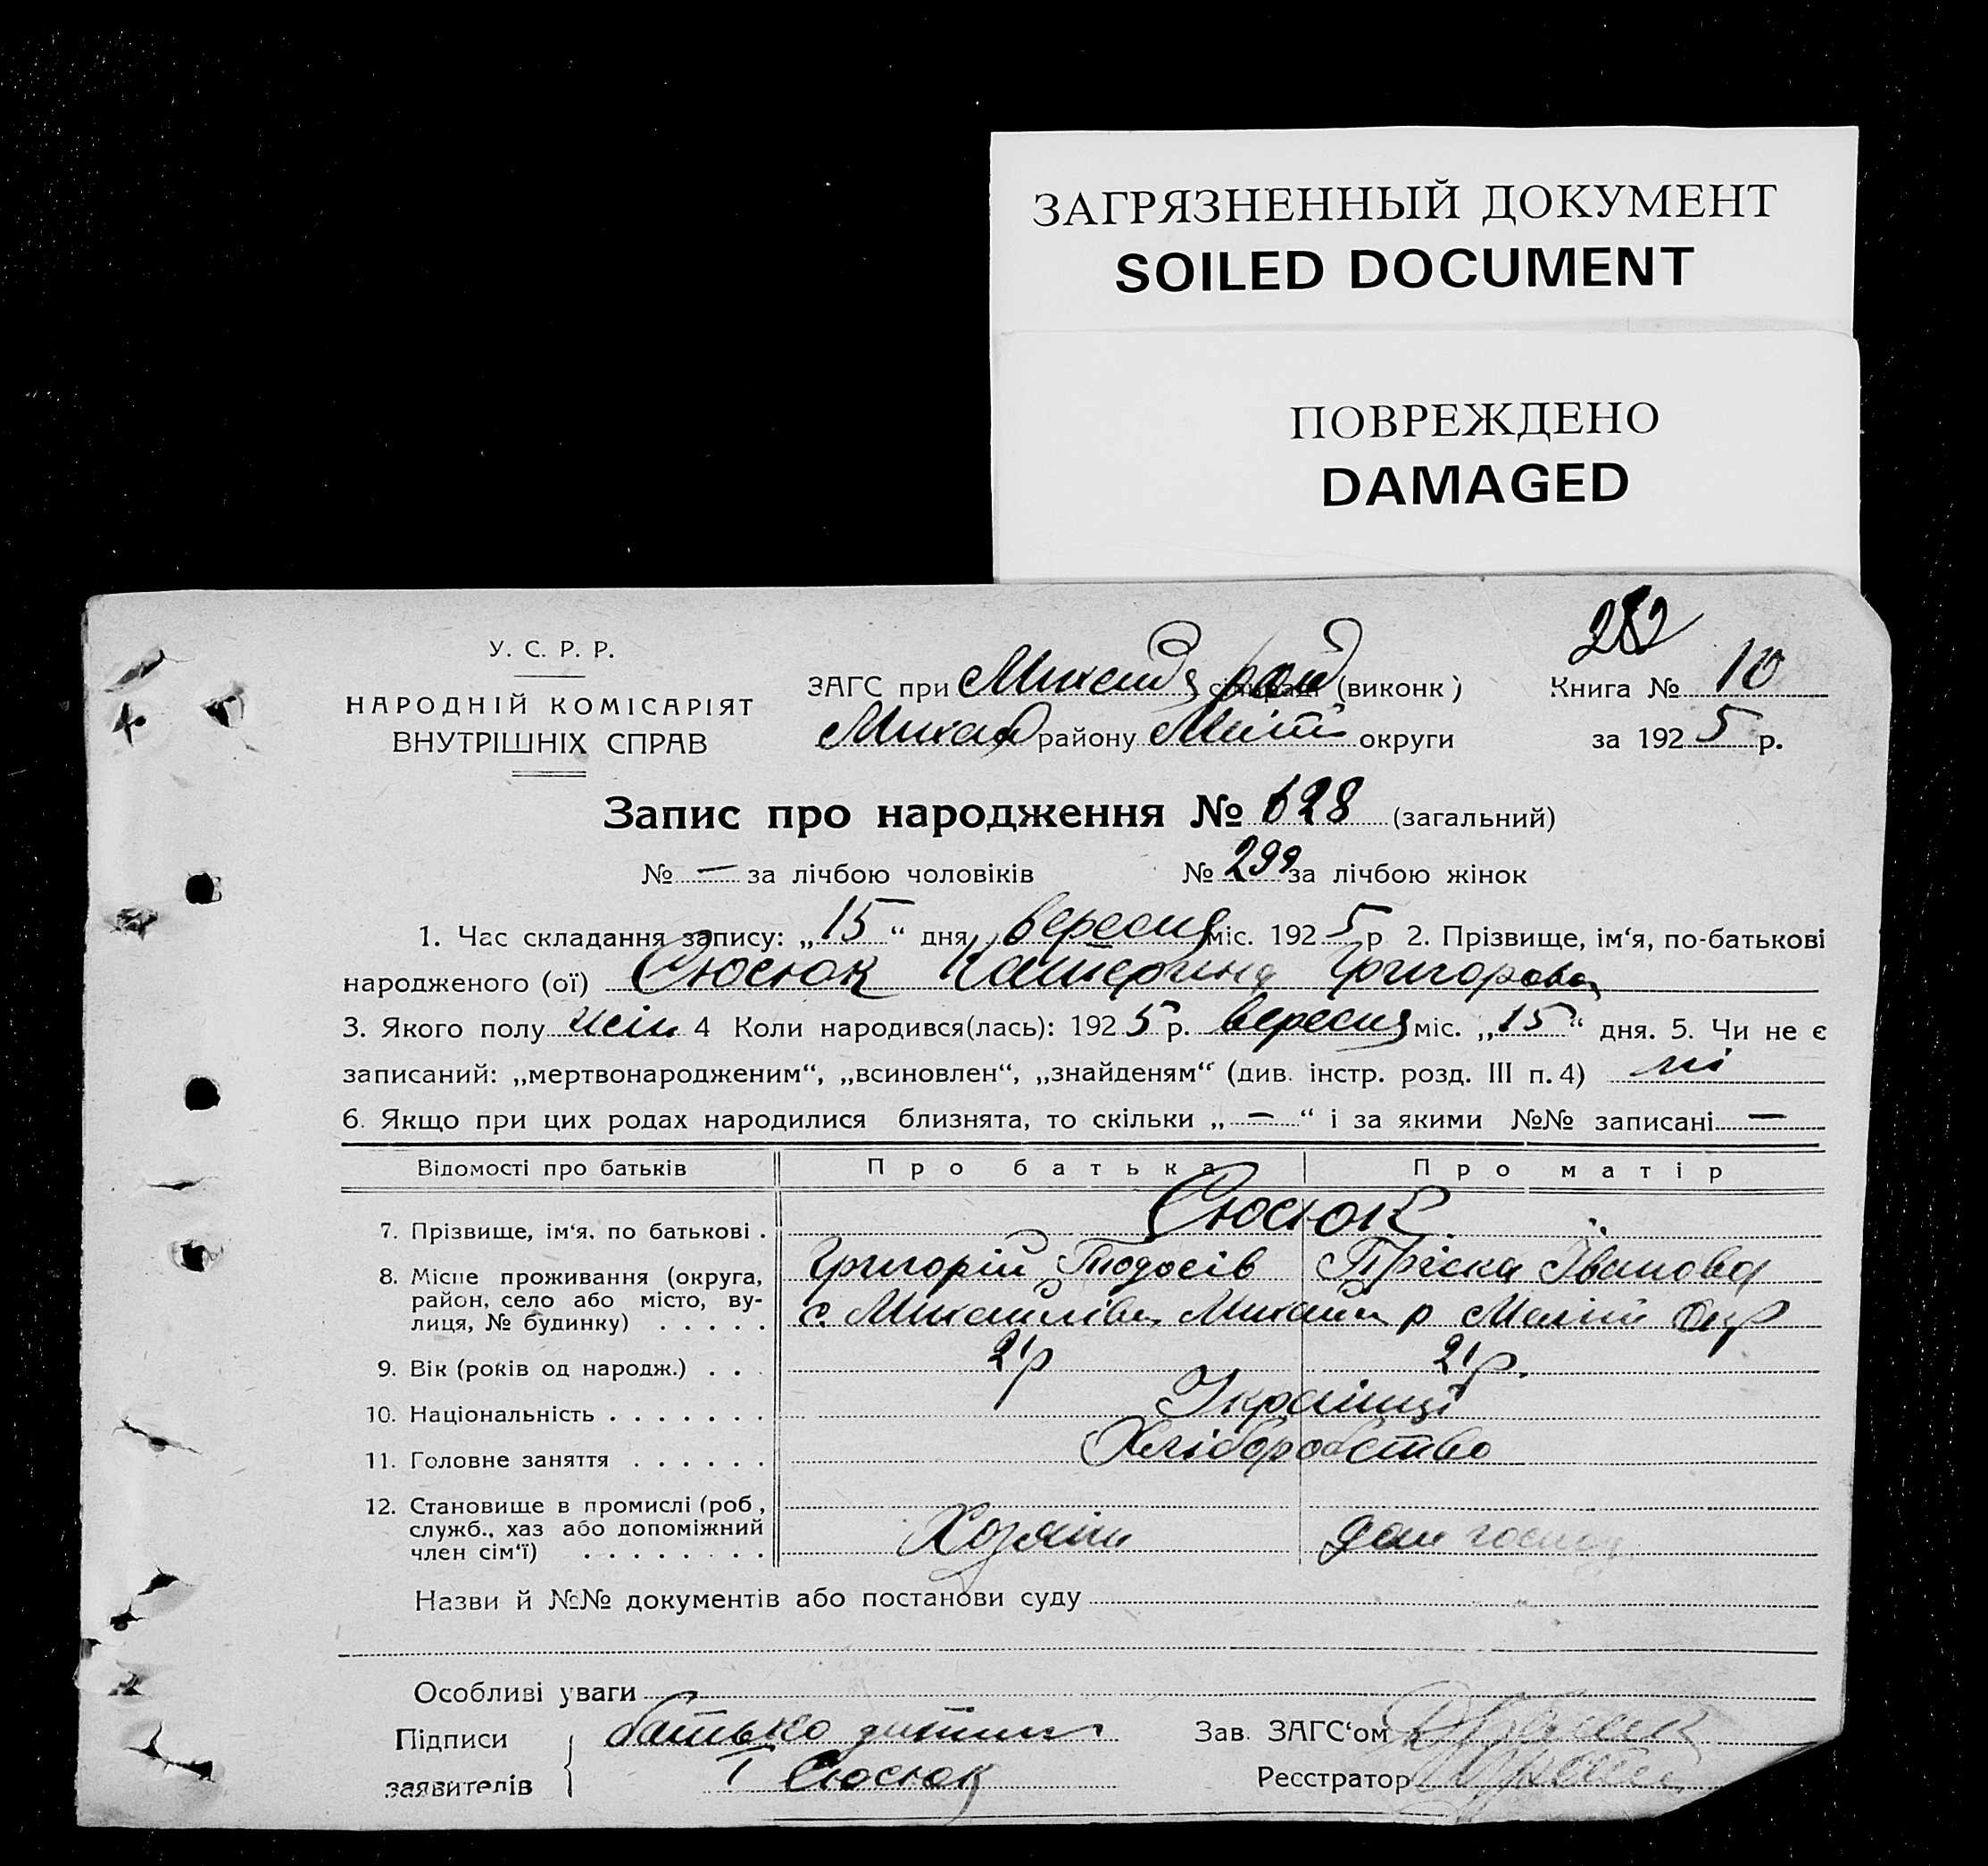 ЗАГРЯЗНЕННЫЙ ДОКУМЕНТ
SOILED DOCUMENT
ПОВРЕЖДЕНО
DAMAGED
282
У. С. Р. Р.
НАРОДНІЙ КОМІСАРІЯТ
ВНУТРІШНІХ СПРАВ
ЗАГС при рай (виконк)
Михай району округи
Книга № 10
за 1925 р.
Запис про народження № 628 (загальний)
№ — за лічбою чоловіків № 299 за лічбою жінок
1. Час складання запису: „15“ дня вересня міс. 1925 р 2. Прізвище, ім‘я, по-батькові
народженого (ої) Сюсюк Катерина Григорова
3. Якого полу жін 4 Коли народився(лась): 1925 р. вересня міс. „15“ дня. 5. Чи не є
записаний: „мертвонародженим“, „всиновлен“, „знайденям“ (див. інстр. розд. III п. 4) ні
6. Якщо при цих родах народилися близнята, то скільки „—“ і за якими №№ записані —
Відомості про батьків Про батька Про матір
7. Прізвище, ім‘я, по батькові . Сюсюк
Григорій Тодосів Пріска Іванова
8. Місце проживання (округа,
район, село або місто, ву-
лиця, № будинку) . . . . . с. Михайлівка Михайл р Меліт окр
9. Вік (років од народж.) . . . 21 р 21 р.
10. Національність . . . . . . . Українці
11. Головне заняття . . . . . . Хліборобство
12. Становище в промислі (роб.,
служб., хаз або допоміжний
член сім‘ї) . . . . . . . . Хозяїн дом господ
Назви й №№ документів або постанови суду
Особливі уваги
Підписи
заявителів
батько дитини
Сюсюк
Зав. ЗАГС‘ом
Реєстратор